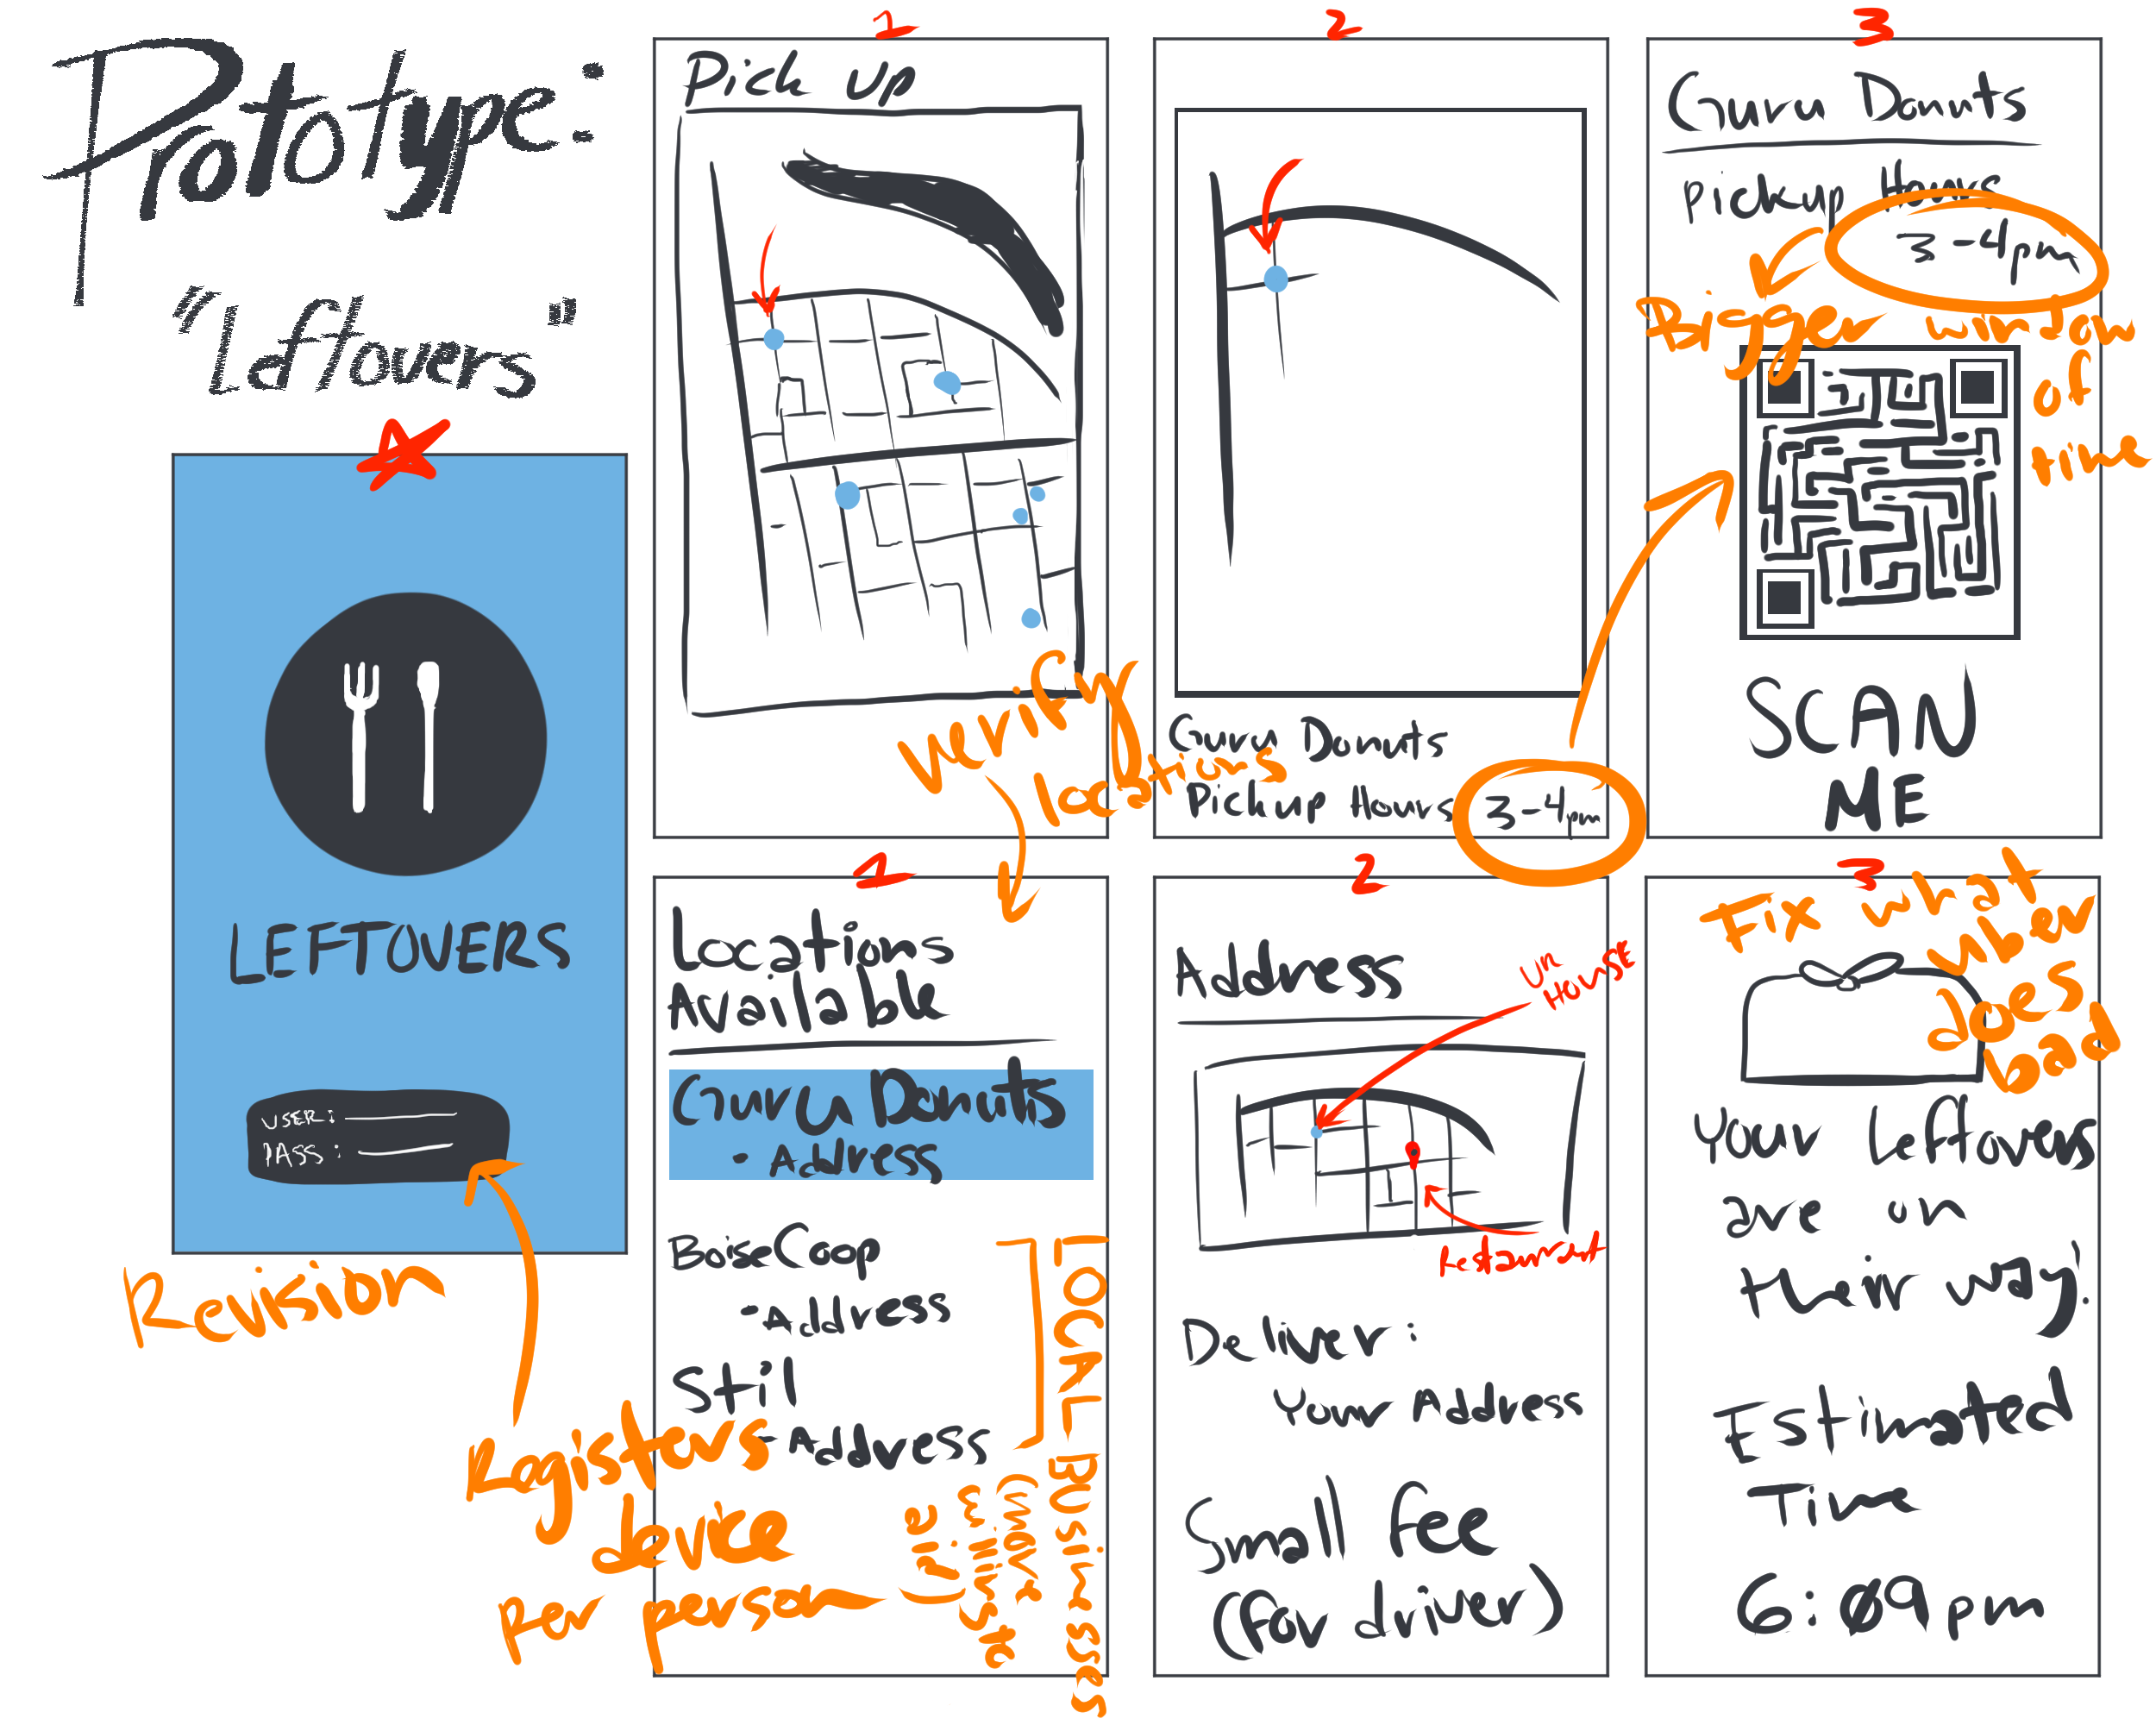 Prototype:
"Leftovers"
LEFTOVERS
USER:
PASS:
Revision
Registers
device
per person
1
Pick up
verify
locations
2
Guru Donuts
Pickup Hours 3-4pm
3
Guru Donuts
Pickup Hours
3-4pm
Bigger window
of
time
SCAN
ME
1
Locations
Available
Guru Donuts
- Address
Boise Coop
- Address
Stil
- Address
LOCAL Businesses
2
Address
UR
HOUSE
Restaurant
Deliver:
Your Address
Small fee
(for driver)
3
Fix what
when
does
bad
Your Leftovers
are on
their way!
Estimated
Time
6:09pm